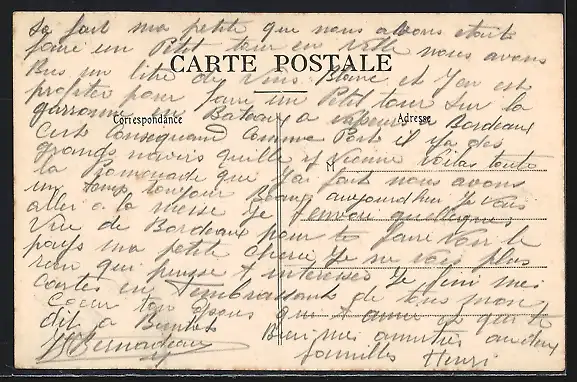 sa fait ma petite que nous avons etait
faire un Petit tour en ville nous avons
CARTE POSTALE
Bus un litre de Vin Blanc et J'en est
profiter pour faire un Petit tour sur la
garronne Bateaux a vapeur a Bordeaux
Correspondance
Adresse
C'est Consequand Comme Port il y a des
grands navirs qu'ille y vienne Voilas toute
M
la Promenade que J'ai fait nous avons
un temps toujour Beau aujourdhui Je vais
aller a la messe Je t'envoi quelleques
Vue de Bordeaux pour te faire Voir le
pays ma petite cherie Je ne vois plus
rien qui puisse t'interesser Je fini mes
cartes en T'embrassant de tous mon
Coeur ton epoux qui t'aime et qui te
dit a Bientot
Bien mes amitiés au deux
familles Henri
HBernadeau